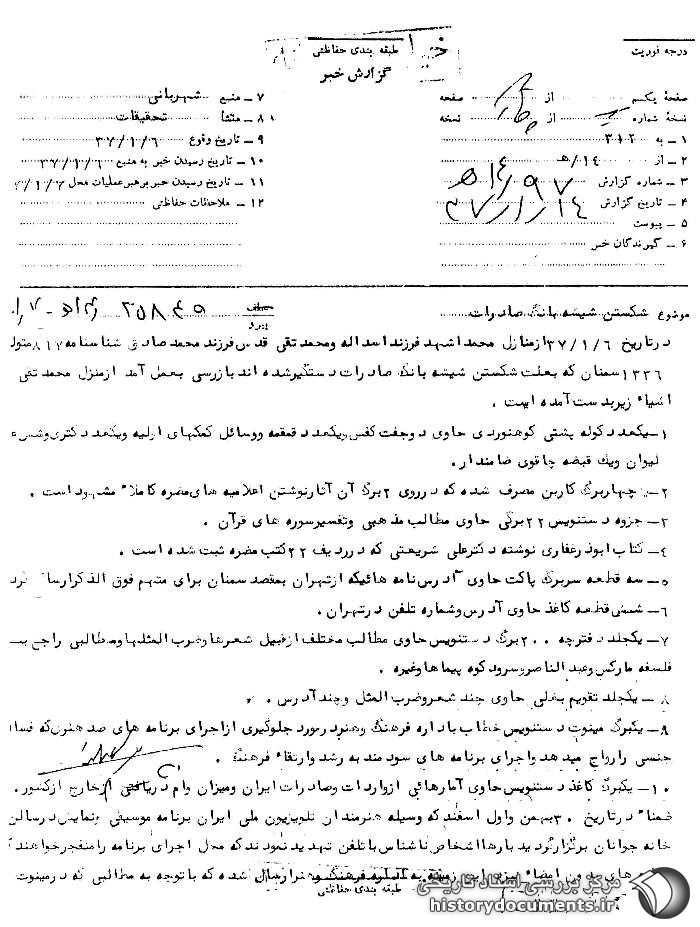 درجه فوریت
طبقه بندی حفاظتی
گزارش خبر
صفحهٔ یکم از صفحه
نسخهٔ شماره از نسخه
۱ ـ به ۳۱۲
۲ ـ از ۱۴/ هـ
۳ ـ شماره گزارش ۹۷ / ۱۴ هـ
۴ ـ تاریخ گزارش ۳۷/۱/۱۴
۵ ـ پیوست
۶ ـ گیرندگان خبر
۷ ـ منبع شهربانی
۸ ـ منشأ تحقیقات
۹ ـ تاریخ وقوع ۳۷/۱/۶
۱۰ ـ تاریخ رسیدن خبر به منبع ۳۷/۱/۶
۱۱ ـ تاریخ رسیدن خبر برهبر عملیات محل
۱۲ ـ ملاحظات حفاظتی
موضوع شکستن شیشه بانک صادرات
در تاریخ ۳۷/۱/۶ از منازل محمد اشهد فرزند اسداله و محمد تقی قدس فرزند محمد صادق شناسنامه ۸۱۷ متول
۱۳۳۶ سمنان که بعلت شکستن شیشه بانک صادرات دستگیر شده اند بازرسی بعمل آمد از منزل محمد تقی
اشیاء زیر بدست آمده است .
۱ـ یکعدد کوله پشتی کوهنوردی حاوی دو جفت کفش ویکعدد قمقمه ووسائل کمکهای اولیه ویکعدد کتری وشیر
لیوان ویک قبضه چاقوی ضامندار.
۲ـ چهاربرگ کاربن مصرف شده که درروی ۲برگ آن آثارنوشتن اعلامیه های مضره کاملا مشهود است .
۳ـ جزوه دستنویس ۲۲ برگی حاوی مطالب مذهبی وتفسیرسوره های قرآن .
۴ـ کتاب ابوذرغفاری نوشته دکترعلی شریعتی که درردیف ۲۲ کتب مضره ثبت شده است .
۵ـ سه قطعه سربرگ پاکت حاوی آدرس نامه هائیکه ازتهران بمقصد سمنان برای متهم فوق الذکرارسال
۶ـ شش قطعه کاغذ حاوی آدرس وشماره تلفن درتهران .
۷ـ یکجلد دفترچه ۲۰۰ برگ دستنویس حاوی مطالب مختلف ازقبیل شعرها وضرب المثلها ومطالبی راجع به
فلسفه مارکس وعبدالناصروسرود کوه پیماها وغیره .
۸ ـ یکجلد تقویم بغلی حاوی چند شعروضرب المثل وچند آدرس .
۹ـ یکبرگ مینوت دستنویس خطاب باداره فرهنگ وهنردرمورد جلوگیری ازاجرای برنامه های ضد هنری که فساد
جنسی را رواج میدهد واجرای برنامه های سودمند به رشد وارتقاء فرهنگ .
۱۰ـ یکبرگ کاغذ دستنویس حاوی آمارهائی ازواردات وصادرات ایران ومیزان وام دریافتی ازخارج ازکشور.
ضمناً درتاریخ ۳۰بهمن واول اسفند که وسیله هنرمندان تلویزیون ملی ایران برنامه موسیقی ونمایش درسالن
خانه جوانان برگزارگردید بارها اشخاص ناشناس باتلفن تهدید نمودند که محل اجرای برنامه را منفجرخواهند
های بدون امضاء نیزدراین زمینه به اداره فرهنگ وهنرارسال شده که باتوجه به مطالبی که درمینوت
طبقه بندی حفاظتی
مرکز بررسی اسناد تاریخی
historydocuments.ir